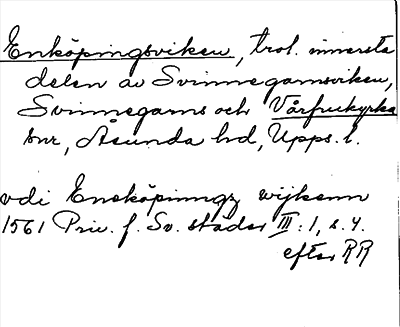 Enköpingsviken, trol. innersta
delen av Svinnegarnsviken,
Svinnegarns och Vårfrukyrka
snr, Åsunda hd, Upps. l.
vdi Eneköpinngz wijkenn
1561 Priv. f. Sv. städer III:1, s. 4.
efter RR